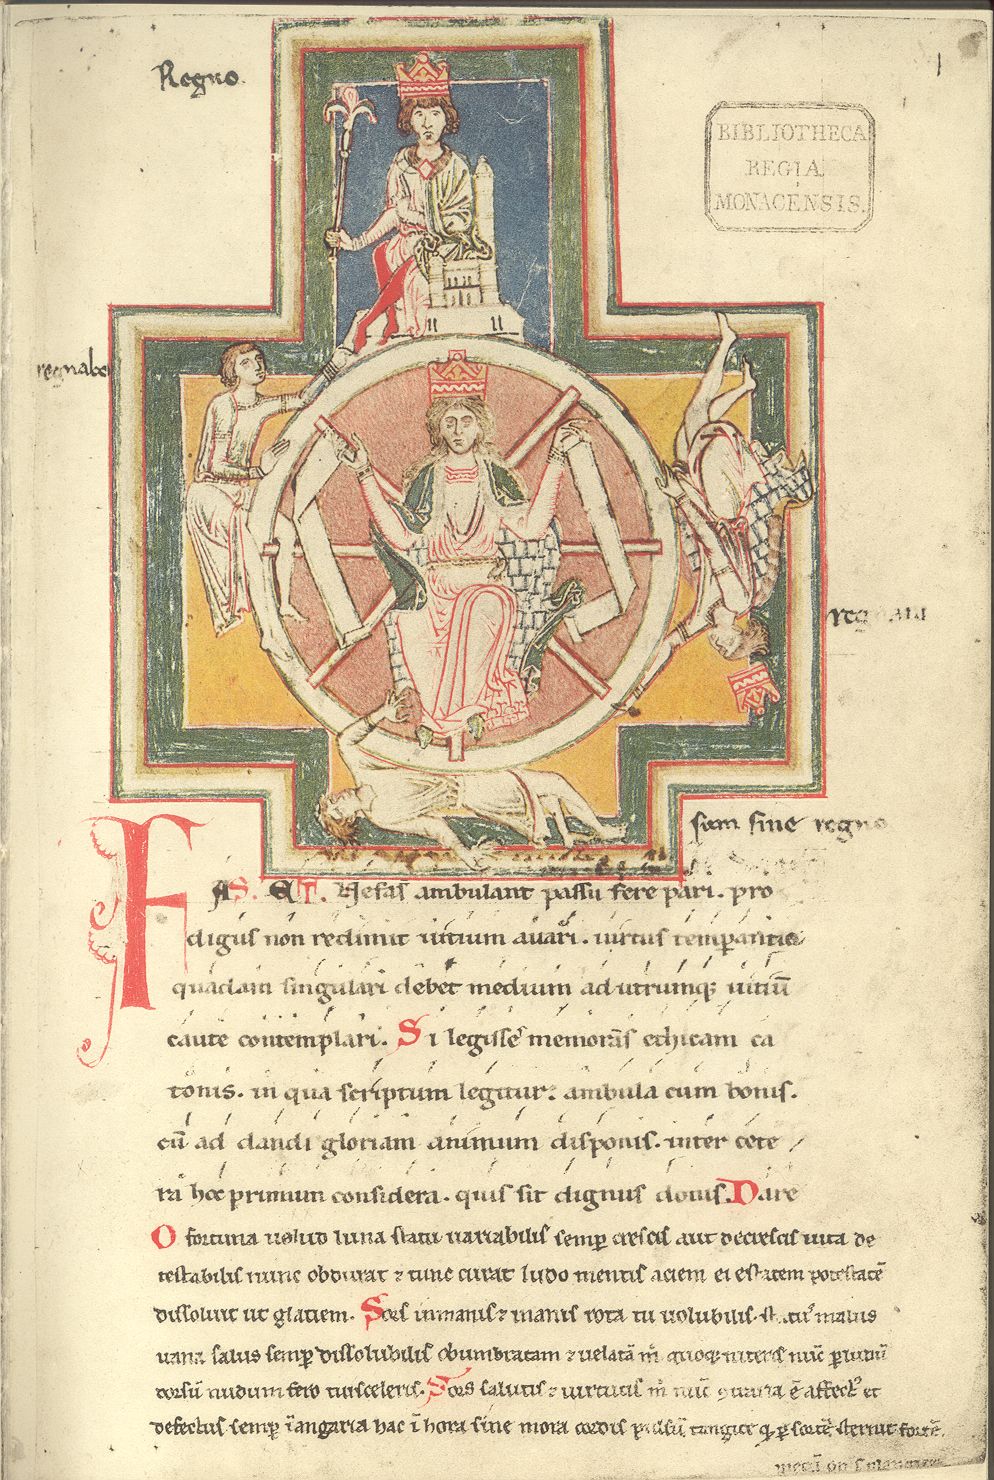 Regno
I
BIBLIOTHECA
REGIA
MONACENSIS.
regnabo
regnavi
sum sine regno
FAS. ET. Nefas ambulant passu fere pari. pro
digus non redimit uitium auari. uirtus temperantia
quadam singulari debet medium ad utrumq; uitiū
caute contemplari. Si legisse memoras ethicam ca
tonis. in qua scriptum legitur. ambula cum bonis.
cū ad dandi gloriam animum disponis. inter cete
ra hoc primum considera. quis sit dignus donis. Dare
O fortuna uelud luna statu uariabilis semp crescis aut decrescis uita de
testabilis nunc obdurat ⁊ tunc curat ludo mentis aciem egestatem potestatē
dissoluit ut glaciem. Sors inmanis ⁊ inanis rota tu uolubilis. status malus
uana salus semp dissolubilis obumbratam ⁊ uelatā m quoq; niteris nūc p ludū
dorsū nudum fero tui sceleris. Sors salutis ⁊ uirtutis m nūc ꝯtraria ē affect et
defectus semp ī angaria hac ī hora sine mora cordis pulsū tangite q p sortē sternit fortē
mecū omnes plangite